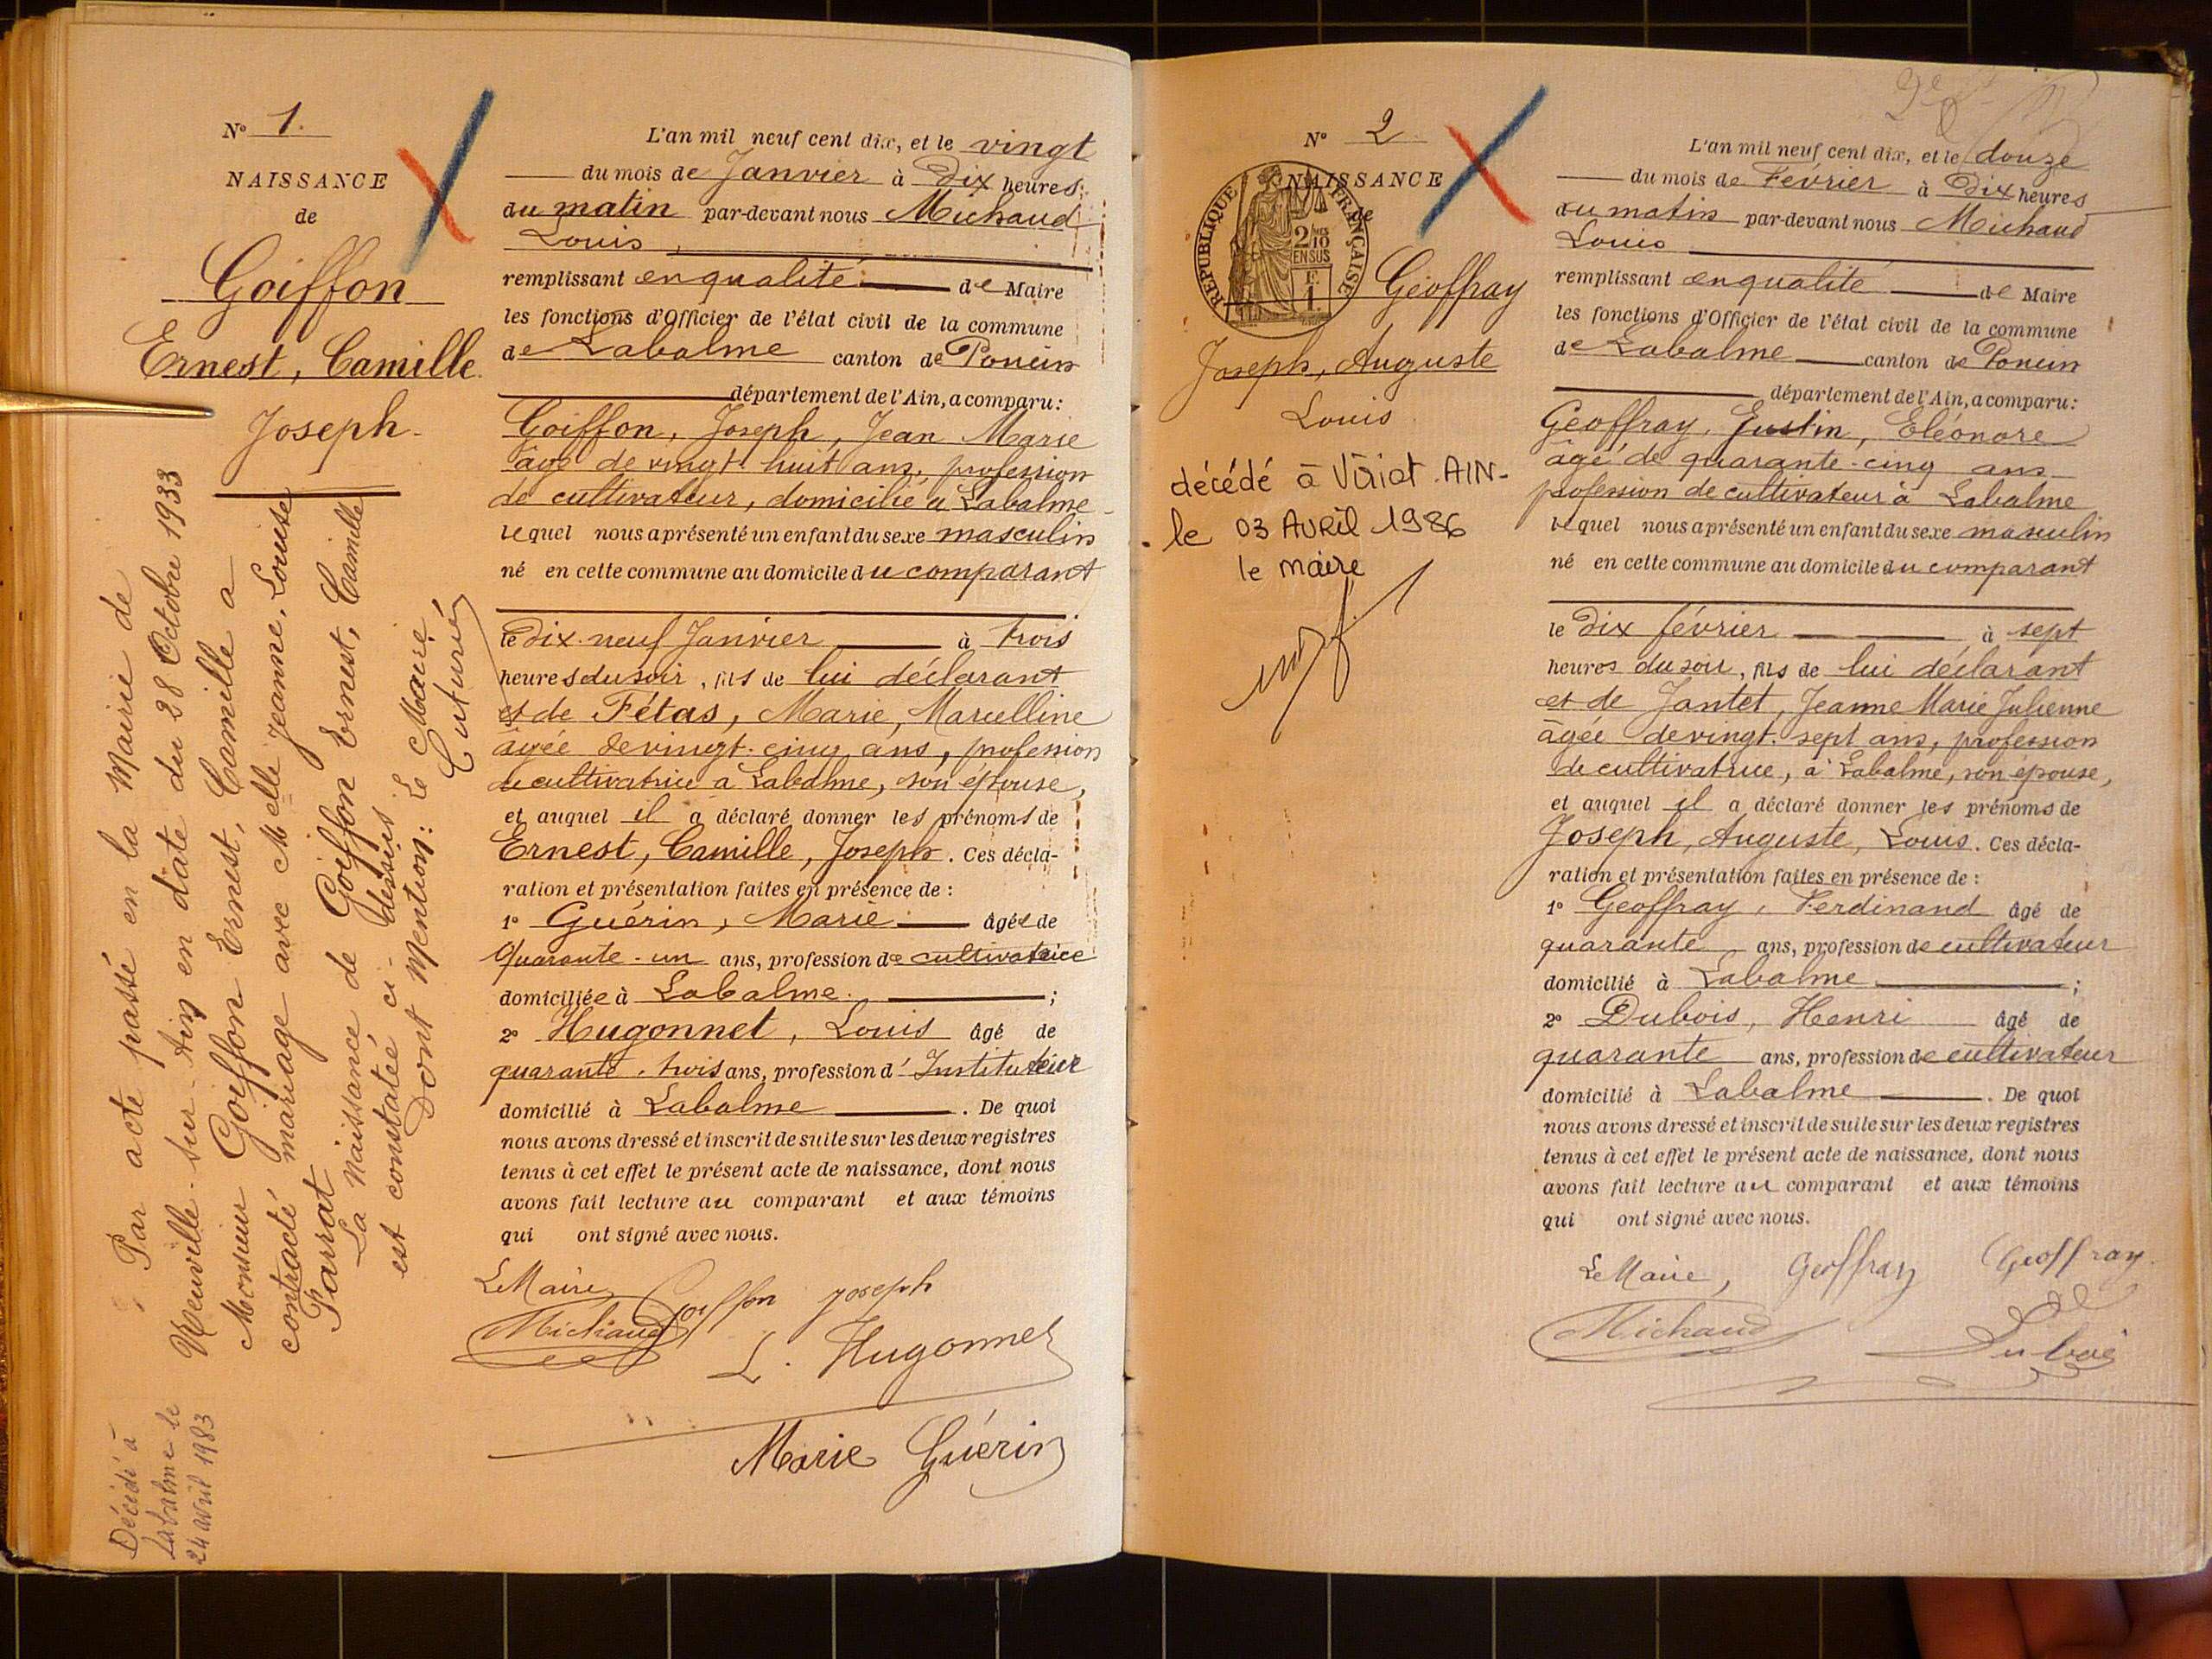 N° 1.
NAISSANCE
de
Goiffon
Ernest, Camille
Joseph.
Par acte passé en la Mairie de
Neuville-sur-Ain en date du 28 Octobre 1933
Monsieur Goiffon Ernest, Camille a
contracté mariage avec Melle Jeanne, Louise
Parrat
La Naissance de Goiffon Ernest, Camille
est constatée ci-dessus
Dont Mention: Le Maire
Décédé à
Labalme le
24 avril 1983
L'an mil neuf cent dix, et le vingt
du mois de Janvier à Dix heures
du matin par-devant nous Michaud
Louis,
remplissant en qualité de Maire
les fonctions d'Officier de l'état civil de la commune
de Labalme canton de Poncin
département de l'Ain, a comparu:
Goiffon, Joseph, Jean Marie
âgé de vingt huit ans, profession
de cultivateur, domicilié à Labalme
lequel nous a présenté un enfant du sexe masculin
né en cette commune au domicile du comparant
le Dix-neuf Janvier à trois
heures du soir, fils de lui déclarant
et de Fétas, Marie, Marcelline
âgée de vingt-cinq ans, profession
de cultivatrice à Labalme, son épouse,
et auquel il a déclaré donner les prénoms de
Ernest, Camille, Joseph. Ces décla-
ration et présentation faites en présence de:
1° Guérin, Marie âgée de
Quarante-un ans, profession de cultivatrice
domiciliée à Labalme. ;
2° Hugonnet, Louis âgé de
quarante-trois ans, profession d'Instituteur
domicilié à Labalme. De quoi
nous avons dressé et inscrit de suite sur les deux registres
tenus à cet effet le présent acte de naissance, dont nous
avons fait lecture au comparant et aux témoins
qui ont signé avec nous.
Le Maire, Goiffon Joseph
Michaud
L. Hugonnet
Marie Guérin
N° 2
NAISSANCE
de
RÉPUBLIQUE FRANÇAISE
2/10
EN SUS
Geoffray
Joseph, Auguste
Louis
décédé à Viriat. AIN-
le 03 AVRIL 1986
le maire
L'an mil neuf cent dix, et le douze
du mois de Février à Dix heures
du matin par-devant nous Michaud
Louis
remplissant en qualité de Maire
les fonctions d'Officier de l'état civil de la commune
de Labalme canton de Poncin
département de l'Ain, a comparu:
Geoffray, Justin, Eléonore
âgé de quarante-cinq ans
profession de cultivateur à Labalme
lequel nous a présenté un enfant du sexe masculin
né en cette commune au domicile du comparant
le Dix février à sept
heures du soir, fils de lui déclarant
et de Jantet, Jeanne Marie Julienne
âgée de vingt-sept ans, profession
de cultivatrice, à Labalme, son épouse,
et auquel il a déclaré donner les prénoms de
Joseph, Auguste, Louis. Ces décla-
ration et présentation faites en présence de:
1° Geoffray, Ferdinand âgé de
quarante ans, profession de cultivateur
domicilié à Labalme ;
2° Dubois, Henri âgé de
quarante ans, profession de cultivateur
domicilié à Labalme. De quoi
nous avons dressé et inscrit de suite sur les deux registres
tenus à cet effet le présent acte de naissance, dont nous
avons fait lecture au comparant et aux témoins
qui ont signé avec nous.
Le Maire, Geoffray Geoffray
Michaud Dubois